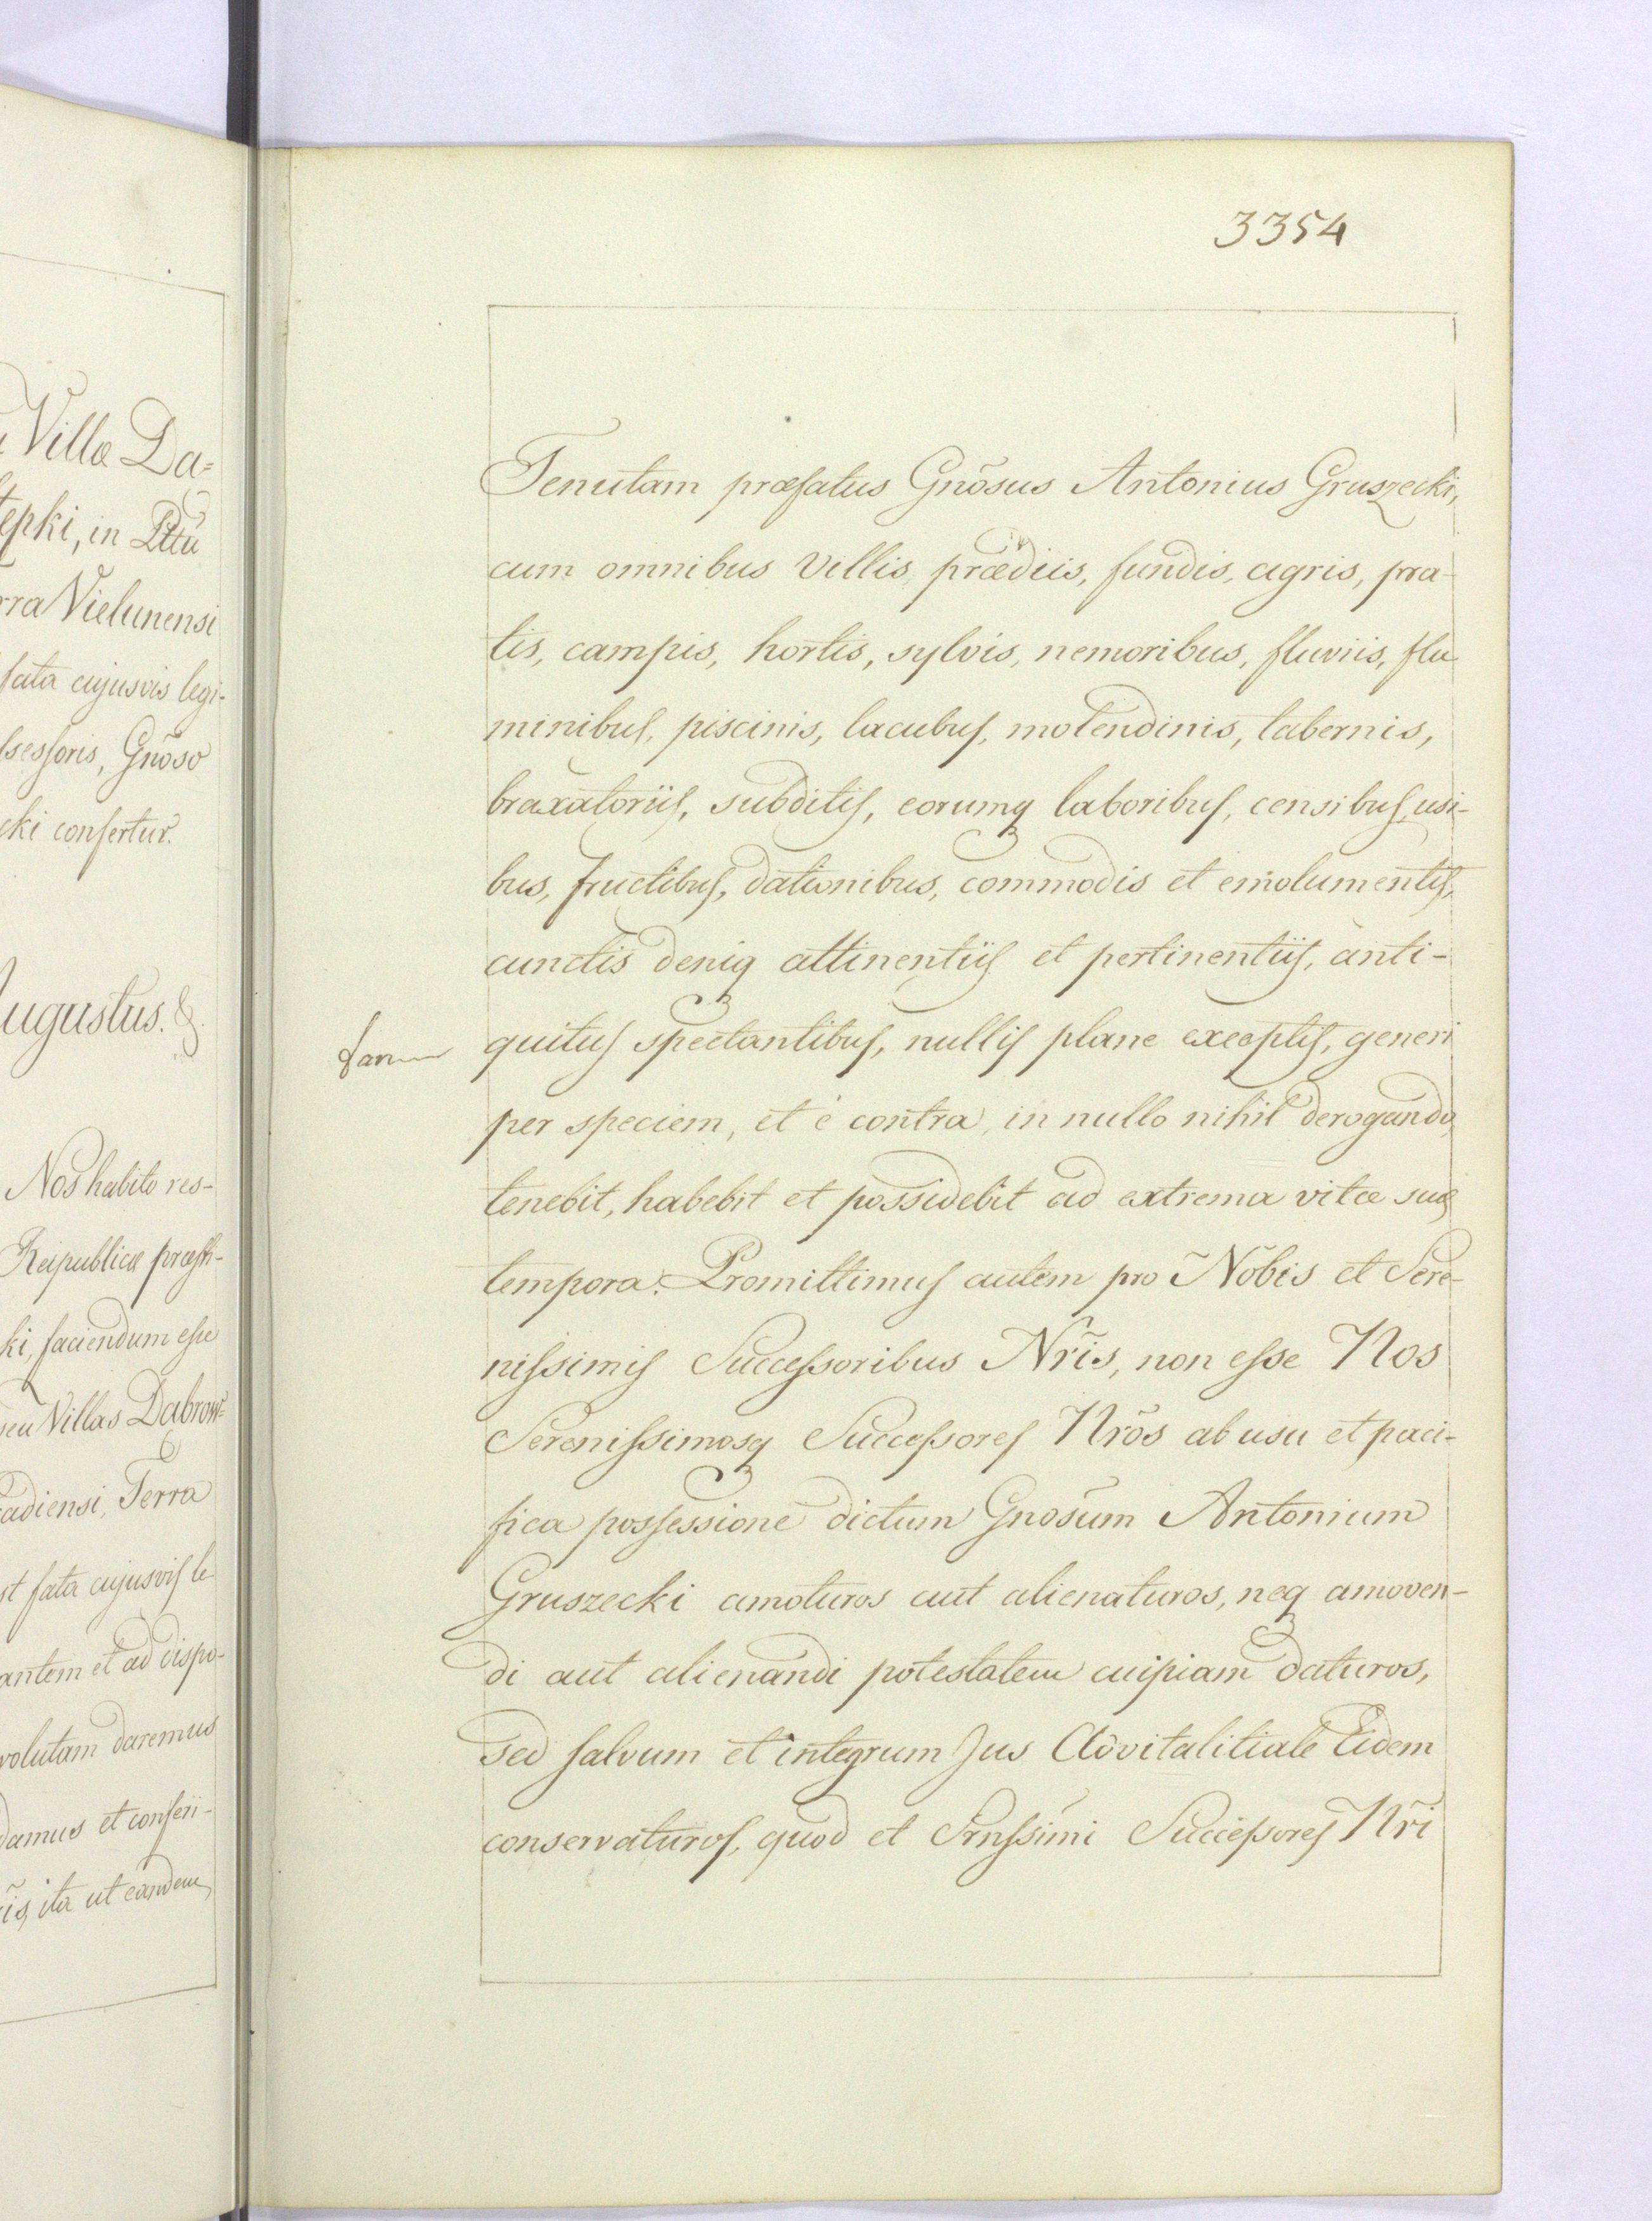 Villæ Da=
tępki, in Pttũ
rra Vielunensi
fata cujusvis legi-
ssessoris, Gnõso
cki confertur.
Augustus. &.
Nos habito res-
Reipublicæ præsti-
ki, faciendum esse
seu Villas Dąbrow=
adiensi, Terra
st fata cujusvis le
antem et ad dispo-
volutam daremus
damus et conferi-
ita ut eandem
3354
Tenutam præfatus Gnõsus Antonius Gruszecki,
cum omnibus Villis, prædiis, fundis, agris, pra-
tis, campis, hortis, sylvis, nemoribus, fluviis, flu-
minibus, piscinis, lacubus, molendinis, tabernis,
braxatoriis, subditis, eorumq laboribus, censibus, usi-
bus, fructibus, dationibus, commodis et emolumentis,
cunctis deniq attinentiis et pertinentiis, anti-
quitus spectantibus, nullis plane exceptis, generi
per speciem, et è contra, in nullo nihil derogando,
tenebit, habebit et possidebit ad extrema vitæ suæ
tempora. Promittimus autem pro Nõbis et Sere-
nissimis Successoribus Nr̃is, non esse Nos
Serenissimosq Successores Nrõs ab usu et paci-
fica possessione dictum Gnosũm Antonium
Gruszecki amoturos aut alienaturos, neq amoven-
di aut alienandi potestatem cuipiam daturos,
sed salvum et integrum Jus Advitalitiale Eidem
conservaturos, quod et Srnssimi Successores Nr̃i